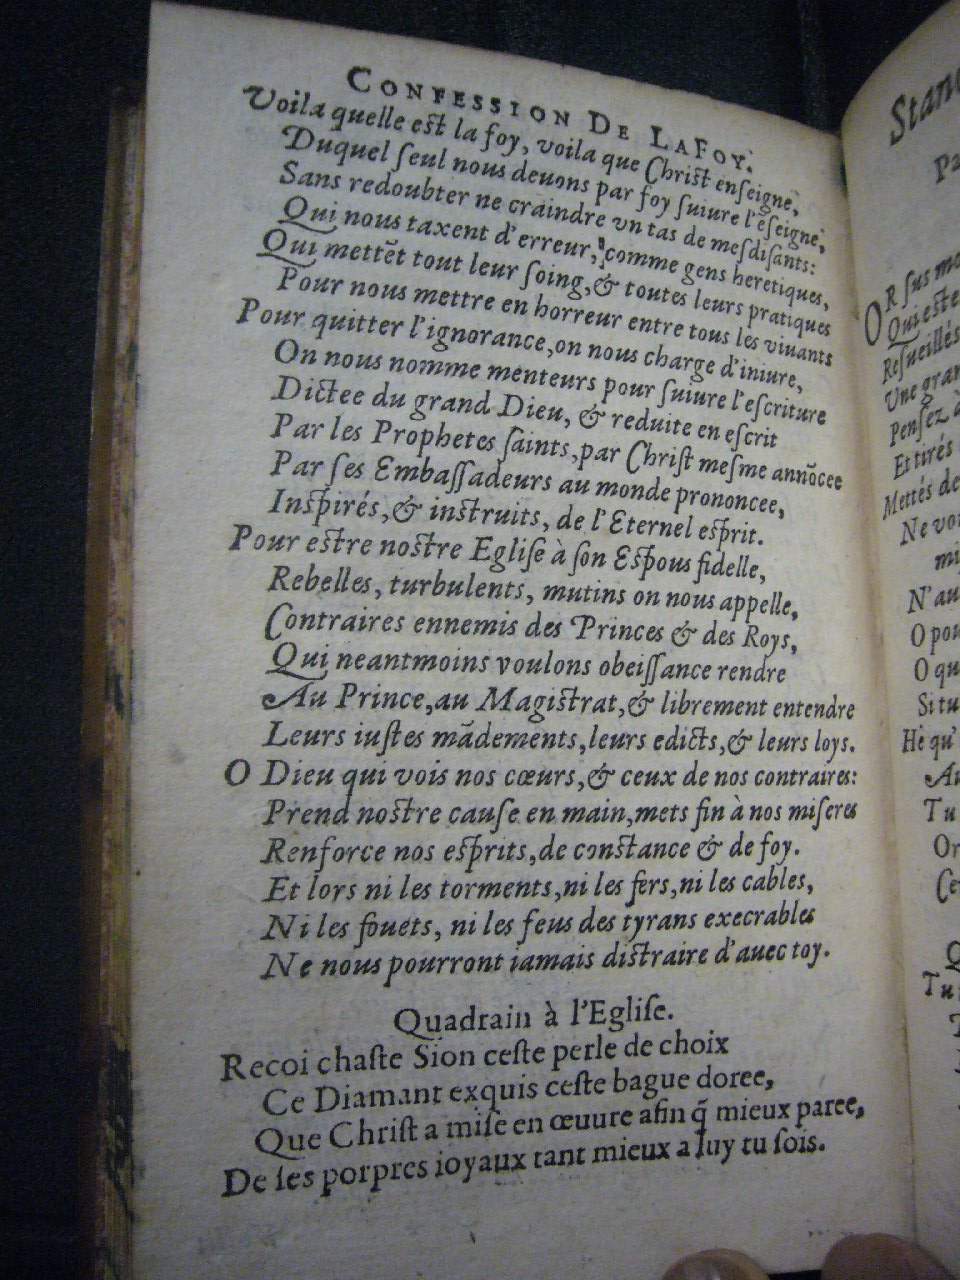 CONFESSION DE LA FOY.
Voila quelle est la foy, voila que Christ enseigne,
Duquel ſeul nous deuons par foy ſuiure l'ẽſeigne,
Sans redoubter ne craindre vn tas de meſdiſants:
Qui nous taxent d'erreur, comme gens heretiques,
Qui mettẽt tout leur ſoing, & toutes leurs pratiques
Pour nous mettre en horreur entre tous les viuants
Pour quitter l'ignorance, on nous charge d'iniure,
On nous nomme menteurs pour ſuiure l'eſcriture
Dictee du grand Dieu, & reduite en eſcrit
Par les Prophetes ſaints, par Chriſt meſme annõcee
Par ſes Embaſſadeurs au monde prononcee,
Inſpirés, & inſtruits, de l'Eternel eſprit.
Pour eſtre noſtre Egliſe à ſon Eſpous fidelle,
Rebelles, turbulents, mutins on nous appelle,
Contraires ennemis des Princes & des Roys,
Qui neantmoins voulons obeiſſance rendre
Au Prince, au Magiſtrat, & librement entendre
Leurs iuſtes mãdements, leurs edicts, & leurs loys.
O Dieu qui vois nos cœurs, & ceux de nos contraires:
Prend noſtre cauſe en main, mets fin à nos miſeres
Renforce nos eſprits, de conſtance & de foy.
Et lors ni les torments, ni les fers, ni les cables,
Ni les fouets, ni les feus des tyrans execrables
Ne nous pourront iamais diſtraire d'auec toy.
Quadrain à l'Egliſe.
Recoi chaſte Sion ceſte perle de choix
Ce Diamant exquis ceſte bague doree,
Que Chriſt a miſe en œuure afin q̃ mieux paree,
De ſes porpres ioyaux tant mieux a luy tu ſois.
OR ſus
Qui eſte
Reſueillés
Une gran
Penſez à
Et tirés
Mettés de
Ne vo
N'au
O pou
O que
Si tu
Hé qu'
Tu
Or